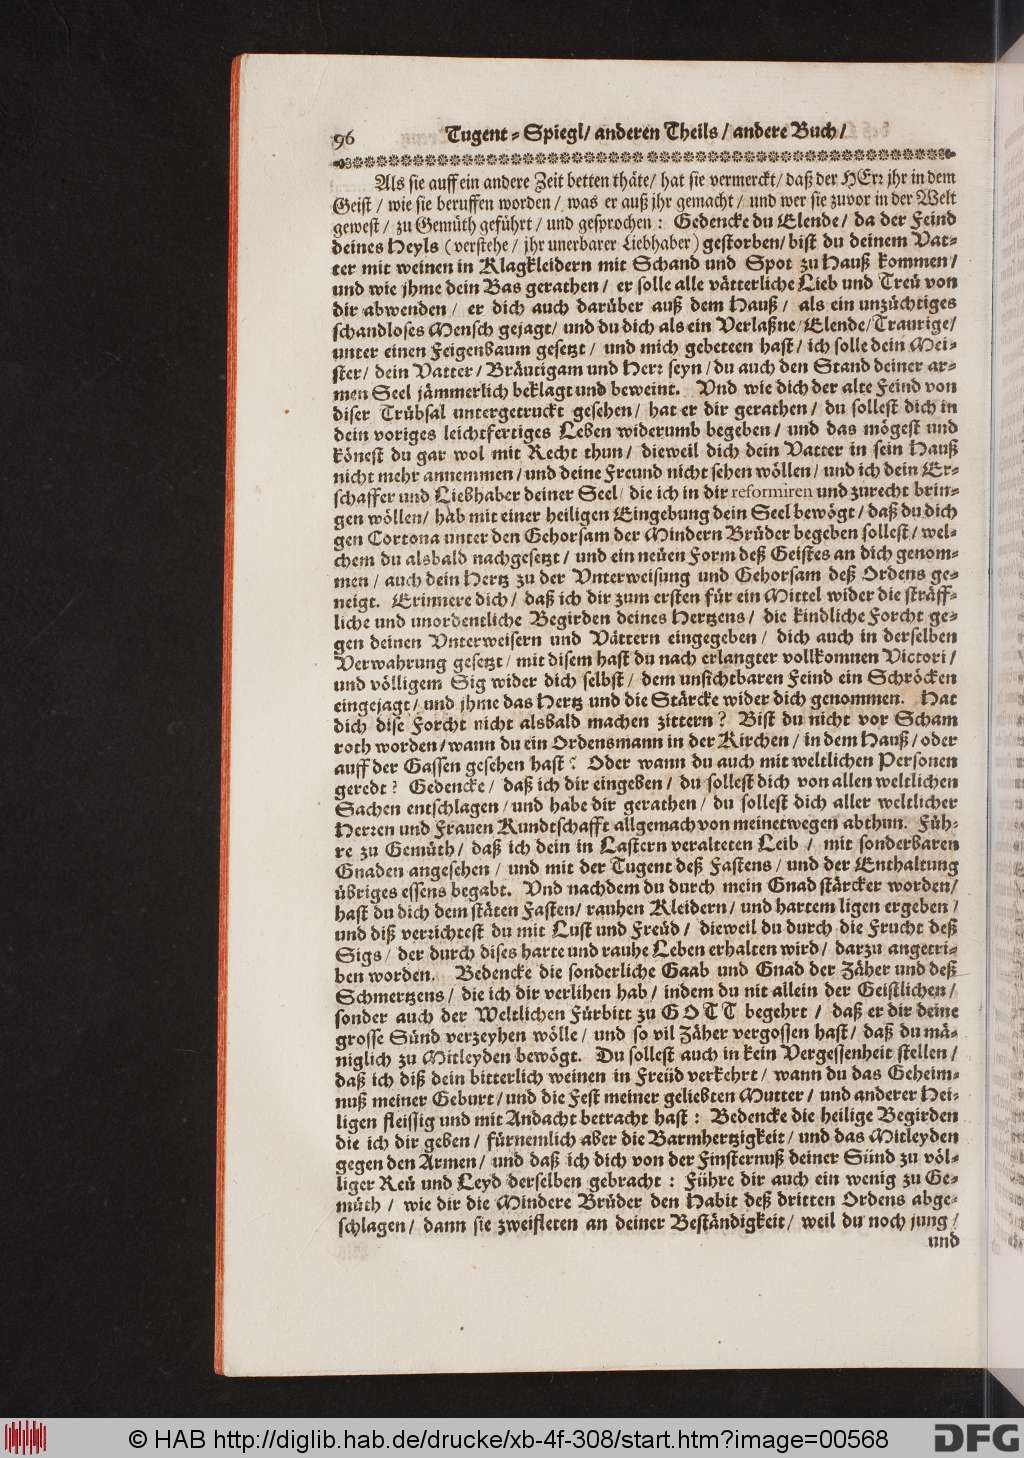 96 Tugent-Spiegl/ anderen Theils/ andere Buch/
Als sie auff ein andere Zeit betten thäte/ hat sie vermerckt/ daß der HErr jhr in dem
Geist/ wie sie beruffen worden/ was er auß jhr gemacht/ und wer sie zuvor in der Welt
gewest/ zu Gemüth geführt/ und gesprochen: Gedencke du Elende/ da der Feind
deines Heyls (verstehe/ jhr unerbarer Liebhaber) gestorben/ bist du deinem Vat-
ter mit weinen in Klagkleidern mit Schand und Spot zu Hauß kommen/
und wie jhme dein Bas gerathen/ er solle alle vätterliche Lieb und Treü von
dir abwenden/ er dich auch darüber auß dem Hauß/ als ein unzüchtiges
schandloses Mensch gejagt/ und du dich als ein Verlaßne/ Elende/ Traurige/
unter einen Feigenbaum gesetzt/ und mich gebetten hast/ ich solle dein Mei-
ster/ dein Vatter/ Bräutigam und Herr seyn/ du auch den Stand deiner ar-
men Seel jämmerlich beklagt und beweint. Vnd wie dich der alte Feind von
diser Trübsal untergetruckt gesehen/ hat er dir gerathen/ du sollest dich in
dein voriges leichtfertiges Leben widerumb begeben/ und das mögest und
könest du gar wol mit Recht thun/ dieweil dich dein Vatter in sein Hauß
nicht mehr annemmen/ und deine Freund nicht sehen wöllen/ und ich dein Er-
schaffer und Liebhaber deiner Seel/ die ich in dir reformiren und zurecht brin-
gen wöllen/ hab mit einer heiligen Eingebung dein Seel bewögt/ daß du dich
gen Cortona unter den Gehorsam der Mindern Brüder begeben sollest/ wel-
chem du alsbald nachgesetzt/ und ein neüen Form deß Geistes an dich genom-
men/ auch dein Hertz zu der Vnterweisung und Gehorsam deß Ordens ge-
neigt. Erinnere dich/ daß ich dir zum ersten für ein Mittel wider die sträff-
liche und unordentliche Begirden deines Hertzens/ die kindliche Forcht ge-
gen deinen Vnterweisern und Vättern eingegeben/ dich auch in derselben
Verwahrung gesetzt/ mit disem hast du nach erlangter vollkomnen Victori/
und völligem Sig wider dich selbst/ dem unsichtbaren Feind ein Schröcken
eingejagt/ und jhme das Hertz und die Stärcke wider dich genommen. Hat
dich dise Forcht nicht alsbald machen zittern? Bist du nicht vor Scham
roth worden/ wann du ein Ordensmann in der Kirchen/ in dem Hauß/ oder
auff der Gassen gesehen hast? Oder wann du auch mit weltlichen Personen
geredt? Gedencke/ daß ich dir eingeben/ du sollest dich von allen weltlichen
Sachen entschlagen/ und habe dir gerathen/ du sollest dich aller weltlicher
Herren und Frauen Kundtschafft allgemach von meinetwegen abthun. Füh-
re zu Gemüth/ daß ich dein in Lastern veralteten Leib/ mit sonderbaren
Gnaden angesehen/ und mit der Tugent deß Fastens/ und der Enthaltung
übriges essens begabt. Vnd nachdem du durch mein Gnad stärcker worden/
hast du dich dem stäten Fasten/ rauhen Kleidern/ und hartem ligen ergeben/
und diß verrichtest du mit Lust und Freüd/ dieweil du durch die Frucht deß
Sigs/ der durch dises harte und rauhe Leben erhalten wird/ darzu angetri-
ben worden. Bedencke die sonderliche Gaab und Gnad der Zäher und deß
Schmertzens/ die ich dir verlihen hab/ indem du nit allein der Geistlichen/
sonder auch der Weltlichen Fürbitt zu GOTT begehrt/ daß er dir deine
grosse Sünd verzeyhen wölle/ und so vil Zäher vergossen hast/ daß du mä-
niglich zu Mitleyden bewögt. Du sollest auch in kein Vergessenheit stellen/
daß ich diß dein bitterlich weinen in Freüd verkehrt/ wann du das Geheim-
nuß meiner Geburt/ und die Fest meiner geliebten Mutter/ und anderer Hei-
ligen fleissig und mit Andacht betracht hast: Bedencke die heilige Begirden
die ich dir geben/ fürnemlich aber die Barmhertzigkeit/ und das Mitleyden
gegen den Armen/ und daß ich dich von der Finsternuß deiner Sünd zu völ-
liger Reü und Leyd derselben gebracht: Führe dir auch ein wenig zu Ge-
müth/ wie dir die Mindere Brüder den Habit deß dritten Ordens abge-
schlagen/ dann sie zweifleten an deiner Beständigkeit/ weil du noch jung/
und
© HAB http://diglib.hab.de/drucke/xb-4f-308/start.htm?image=00568
DFG